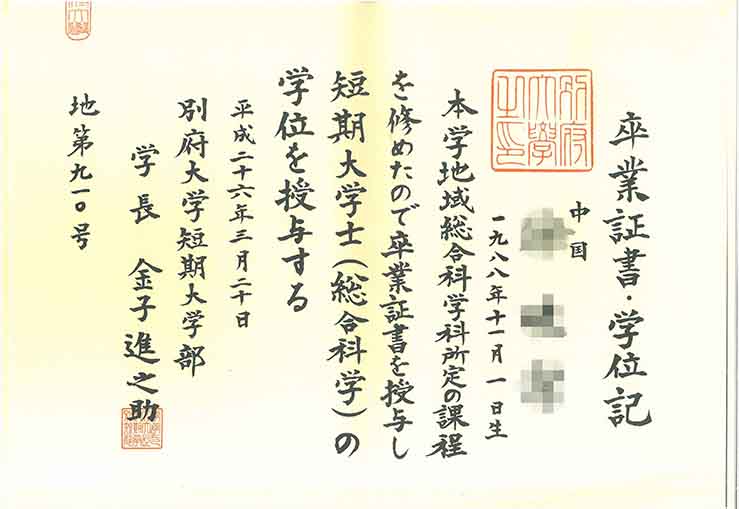 卒業証書・学位記
中国
一九八八年十一月一日生
本学地域総合科学科所定の課程
を修めたので卒業証書を授与し
短期大学士(総合科学)の
学位を授与する
平成二十六年三月二十日
別府大学短期大学部
学長 金子進之助
地第九一〇号
別府
大學
之印